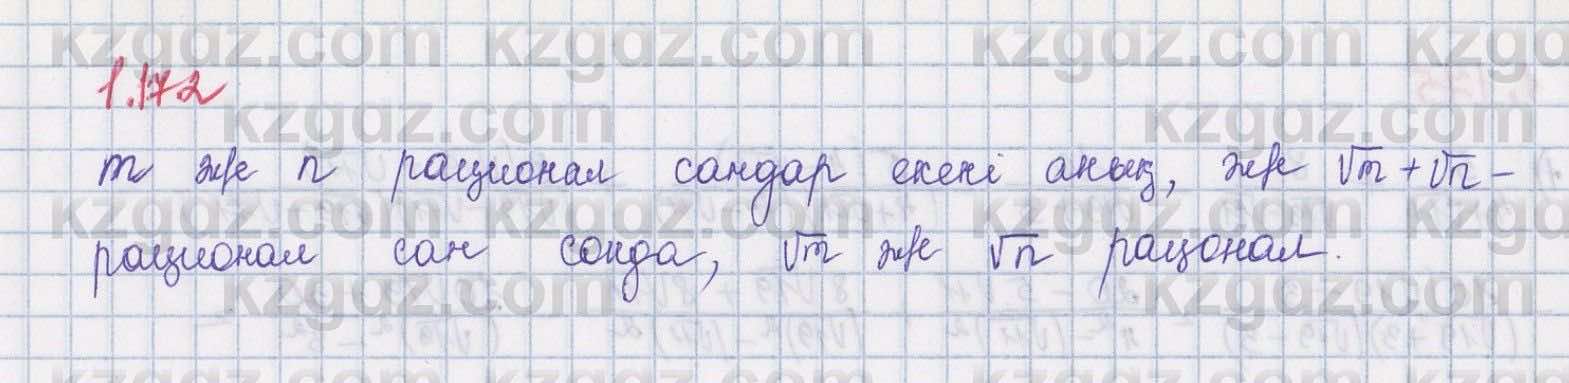 1.172
m және n рационал сандар екені анық, және √m + √n –
рационал сан сонда, √m және √n рацонал.